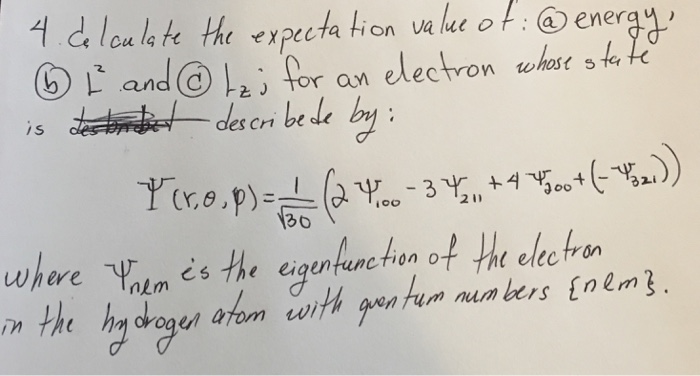 4. Calculate the expectation value of: ⓐ energy,
ⓑ L² and ⓒ L_z; for an electron whose state
is describede by:
Ψ(r,θ,φ) = 1/√30 (2Ψ₁₀₀ - 3Ψ₂₁₁ + 4Ψ₂₀₀ + (-Ψ₃₂₁))
where Ψnlm is the eigenfunction of the electron
in the hydrogen atom with quantum numbers {nlm}.